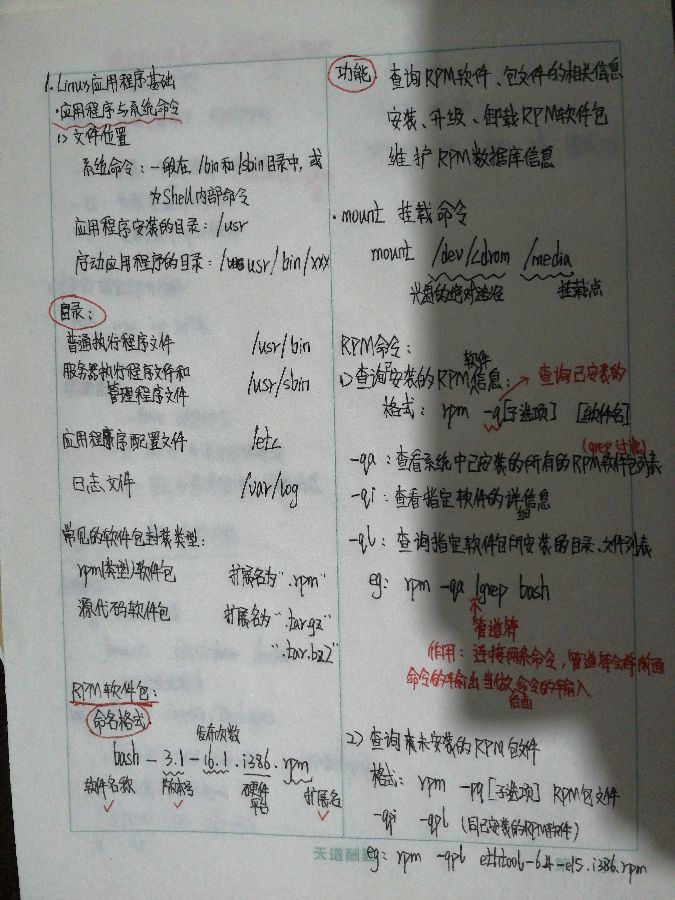 1. Linux应用程序基础
·应用程序与系统命令
1> 文件位置
系统命令：一般在 /bin和/sbin目录中，或
为Shell内部命令
应用程序安装的目录：/usr
序动应用程序的目录：/usr/bin/xxx
目录：
普通执行程序文件 /usr/bin
服务器执行程序文件和
管理程序文件 /usr/sbin
应用程序配置文件 /etc
日志文件 /var/log
常见的软件包封装类型：
rpm(类型)软件包 扩展名为".rpm"
源代码软件包 扩展名为".tar.gz"
".tar.bz2"
RPM软件包：
命名格式
发布次数
bash - 3.1 - 16.1 . i386 . rpm
软件名称 版本号 硬件 扩展名
平台
功能 查询RPM软件、包文件的相关信息
安装、升级、卸载RPM软件包
维护RPM数据库信息
·mount 挂载命令
mount /dev/cdrom /media
光盘的绝对路径 挂载点
RPM命令：
1> 查询已安装的RPM软件信息： 查询已安装的
格式： rpm -q[子选项] [软件名]
(grep过滤)
-qa：查看系统中已安装的所有的RPM软件包列表
-qi：查看指定软件的详细信息
-ql：查询指定软件包所安装的目录、文件列表
eg: rpm -qa |grep bash
管道符
作用：连接两条命令，管道符会将前面
命令的输出当做后面命令的输入
2> 查询未安装的RPM包文件
格式： rpm -pq[子选项] RPM包文件
-qpi -qpl (同已安装的RPM软件)
eg: rpm -qpl ethtool-6.4-el5.i386.rpm
天道酬勤